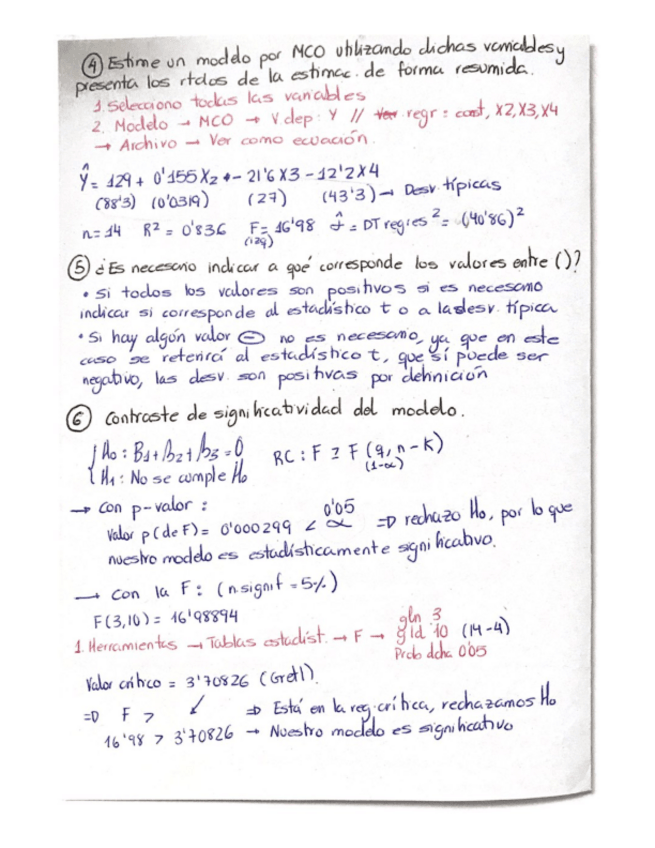 ④ Estime un modelo por MCO utilizando dichas variables y
presenta los rtdos de la estimac. de forma resumida.
1. Selecciono todas las variables
2. Modelo → MCO → V dep: Y // regr: const, X2, X3, X4
→ Archivo → Ver como ecuación.
Ŷ = 129 + 0'155X2 - 21'6X3 - 12'2X4
(88'3) (0'0319) (27) (43'3) → Desv típicas
n=14 R² = 0'836 F= 16'98 σ̂ = DT regres² = (40'86)²
⑤ ¿Es necesario indicar a qué corresponde los valores entre ()?
• Si todos los valores son positivos si es necesario
indicar si corresponde al estadístico t o a la desv. típica
• Si hay algún valor ⊖ no es necesario, ya que en este
caso se referirá al estadístico t, que sí puede ser
negativo, las desv. son positivas por definición
⑥ Contraste de significatividad del modelo.
H0: B1+B2+B3=0 RC: F ≥ F (q, n-k)
(1-α)
H1: No se cumple H0
→ Con p-valor:
Valor p (de F) = 0'000299 < α 0'05 => rechazo H0, por lo que
nuestro modelo es estadísticamente significativo.
→ con la F: (n signif = 5%)
F(3,10) = 16'98894
1. Herramientas → Tablas estadíst. → F → gln 3
gld 10 (14-4)
Prob dcha 0'05
Valor crítico = 3'70826 (Gretl).
=> F > ↙ => Está en la reg. crítica, rechazamos H0
16'98 > 3'70826 → Nuestro modelo es significativo